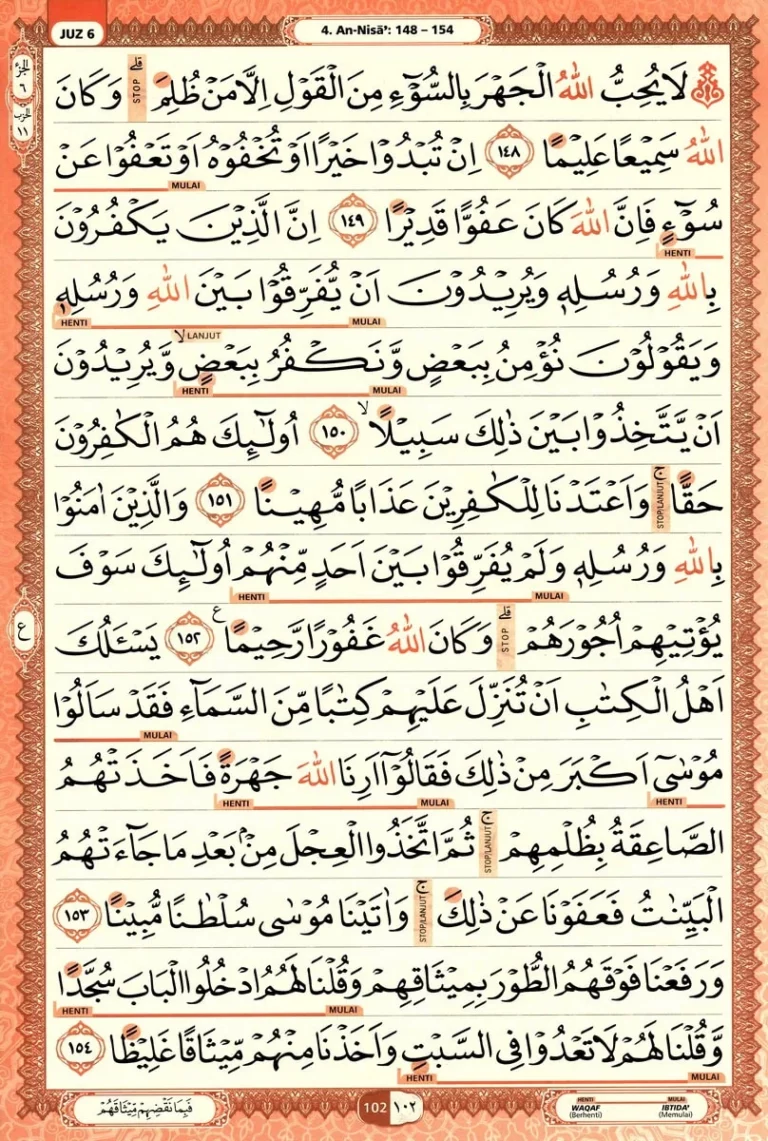 JUZ 6
4. An-Nisā': 148 – 154
الجزء
٦
الحزب
١١
لَا يُحِبُّ اللّٰهُ الْجَهْرَ بِالسُّوْۤءِ مِنَ الْقَوْلِ اِلَّا مَنْ ظُلِمَ ۗ وَكَانَ
STOP
اللّٰهُ سَمِيْعًا عَلِيْمًا ١٤٨ اِنْ تُبْدُوْا خَيْرًا اَوْ تُخْفُوْهُ اَوْ تَعْفُوْا عَنْ
MULAI
سُوْۤءٍ فَاِنَّ اللّٰهَ كَانَ عَفُوًّا قَدِيْرًا ١٤٩ اِنَّ الَّذِيْنَ يَكْفُرُوْنَ
HENTI
بِاللّٰهِ وَرُسُلِهٖ وَيُرِيْدُوْنَ اَنْ يُّفَرِّقُوْا بَيْنَ اللّٰهِ وَرُسُلِهٖ
MULAI HENTI
LANJUT
وَيَقُوْلُوْنَ نُؤْمِنُ بِبَعْضٍ وَّنَكْفُرُ بِبَعْضٍۙ وَّيُرِيْدُوْنَ
MULAI HENTI
اَنْ يَّتَّخِذُوْا بَيْنَ ذٰلِكَ سَبِيْلًاۙ ١٥٠ اُولٰۤىِٕكَ هُمُ الْكٰفِرُوْنَ
حَقًّا ۚ وَاَعْتَدْنَا لِلْكٰفِرِيْنَ عَذَابًا مُّهِيْنًا ١٥١ وَالَّذِيْنَ اٰمَنُوْا
STOP/LANJUT
بِاللّٰهِ وَرُسُلِهٖ وَلَمْ يُفَرِّقُوْا بَيْنَ اَحَدٍ مِّنْهُمْ اُولٰۤىِٕكَ سَوْفَ
MULAI HENTI
يُؤْتِيْهِمْ اُجُوْرَهُمْ ۗ وَكَانَ اللّٰهُ غَفُوْرًا رَّحِيْمًا ࣖ ١٥٢ يَسْـَٔلُكَ
STOP
ع
اَهْلُ الْكِتٰبِ اَنْ تُنَزِّلَ عَلَيْهِمْ كِتٰبًا مِّنَ السَّمَاۤءِ فَقَدْ سَاَلُوْا
MULAI
مُوْسٰٓى اَكْبَرَ مِنْ ذٰلِكَ فَقَالُوْٓا اَرِنَا اللّٰهَ جَهْرَةً فَاَخَذَتْهُمُ
HENTI MULAI HENTI
الصَّاعِقَةُ بِظُلْمِهِمْ ۚ ثُمَّ اتَّخَذُوا الْعِجْلَ مِنْۢ بَعْدِ مَا جَاۤءَتْهُمُ
STOP/LANJUT
الْبَيِّنٰتُ فَعَفَوْنَا عَنْ ذٰلِكَ ۚ وَاٰتَيْنَا مُوْسٰى سُلْطٰنًا مُّبِيْنًا ١٥٣
STOP/LANJUT
وَرَفَعْنَا فَوْقَهُمُ الطُّوْرَ بِمِيْثَاقِهِمْ وَقُلْنَا لَهُمُ ادْخُلُوا الْبَابَ سُجَّدًا
MULAI HENTI
وَّقُلْنَا لَهُمْ لَا تَعْدُوْا فِى السَّبْتِ وَاَخَذْنَا مِنْهُمْ مِّيْثَاقًا غَلِيْظًا ١٥٤
MULAI HENTI
فَبِمَا نَقْضِهِمْ مِّيْثَاقَهُمْ
102 ١٠٢
HENTI WAQAF (Berhenti)
MULAI IBTIDA' (Memulai)